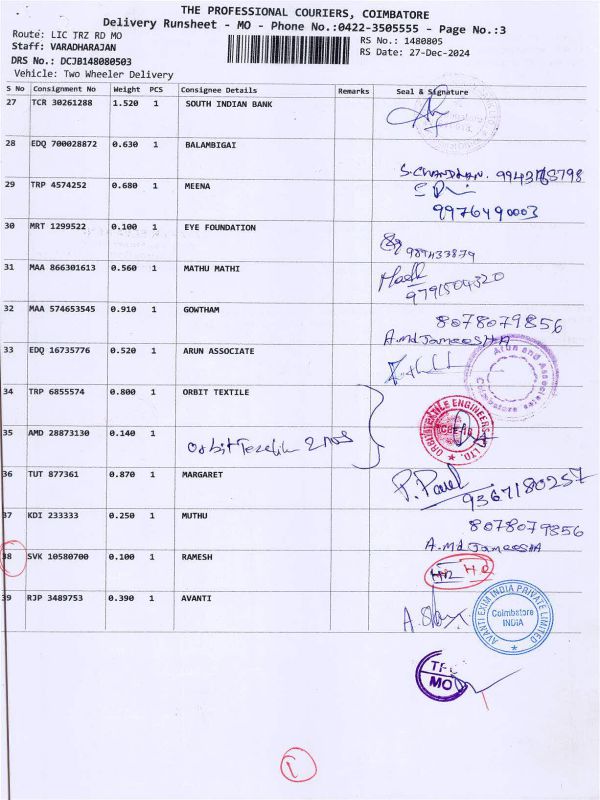 THE PROFESSIONAL COURIERS, COIMBATORE
Delivery Runsheet - MO - Phone No.:0422-3505555 - Page No.:3
Route: LIC TRZ RD MO
RS No.: 1480805
Staff: VARADHARAJAN
RS Date: 27-Dec-2024
DRS No.: DCJB148080503
Vehicle: Two Wheeler Delivery
S No Consignment No Weight PCS Consignee Details Remarks Seal & Signature
27 TCR 30261288 1.520 1 SOUTH INDIAN BANK
28 EDQ 700028872 0.630 1 BALAMBIGAI
29 TRP 4574252 0.680 1 MEENA
9976490003
30 MRT 1299522 0.100 1 EYE FOUNDATION
31 MAA 866301613 0.560 1 MATHU MATHI
9791504320
32 MAA 574653545 0.910 1 GOWTHAM
8078079856
A.md JameesHA
33 EDQ 16735776 0.520 1 ARUN ASSOCIATE
Arun and Associates
Coimbatore
34 TRP 6855574 0.800 1 ORBIT TEXTILE
35 AMD 28873130 0.140 1
Orbit
2 nos
36 TUT 877361 0.870 1 MARGARET
P. Paul
9367180257
37 KDI 233333 0.250 1 MUTHU
8078079856
A.md JameesHA
38 SVK 10580700 0.100 1 RAMESH
39 RJP 3489753 0.390 1 AVANTI
AVANTI EXIM INDIA PRIVATE LIMITED
Coimbatore
INDIA
MO